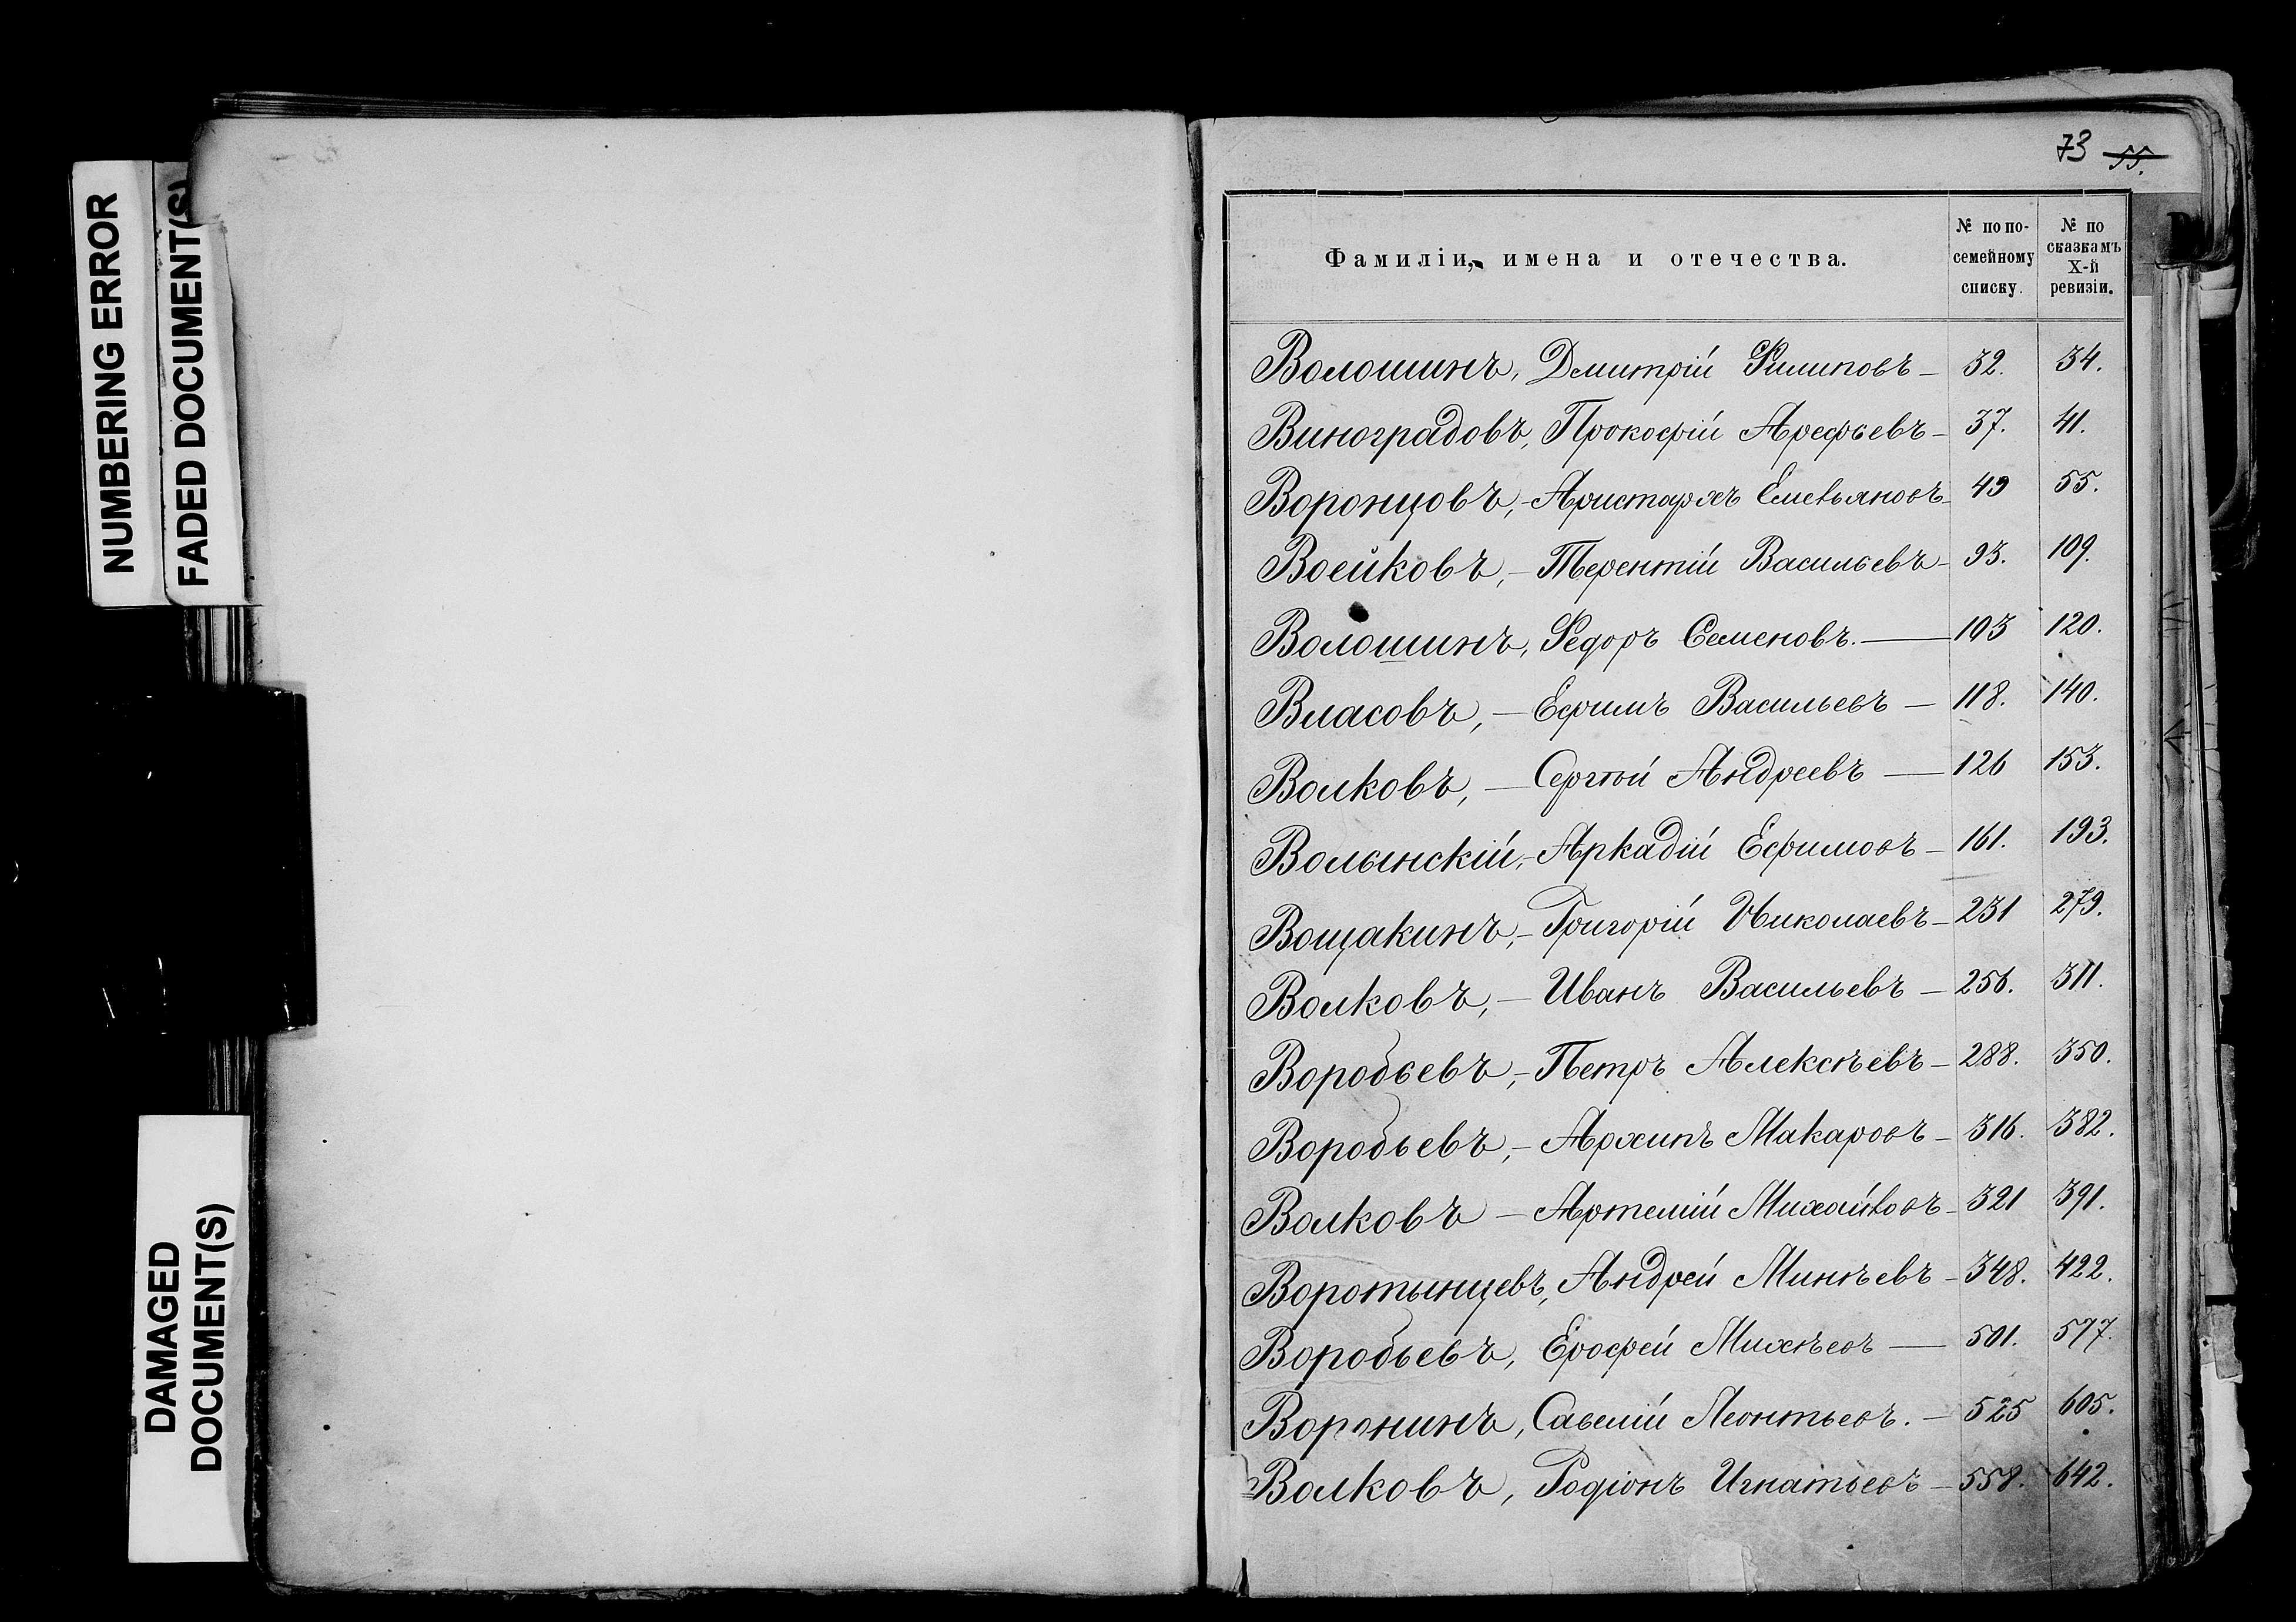 NUMBERING ERROR
FADED DOCUMENT(S)
DAMAGED
DOCUMENT(S)
73 55.
Фамиліи, имена и отечества.
№ по по-
семейному
списку.
№ по
сказкамъ
X-й
ревизіи.
Волошинъ, Дмитрій Филиповъ — 32. 34.
Виноградовъ, Прокофій Арефьевъ — 37. 41.
Воронцовъ, — Аристархъ Емельяновъ — 49 55.
Воейковъ, — Терентій Васильевъ — 93. 109.
Волошинъ, Федоръ Семеновъ. — 103 120.
Власовъ, — Ефимъ Васильевъ — 118. 140.
Волковъ, — Сергѣй Андреевъ — 126 153.
Волынскій, — Аркадій Ефимовъ — 161. 193.
Вощакинъ, — Григорій Николаевъ — 231 279.
Волковъ, — Иванъ Васильевъ — 256. 311.
Воробьевъ, — Петръ Алексѣевъ — 288. 350.
Воробьевъ, — Архипъ Макаровъ — 316. 382.
Волковъ — Артемій Михайловъ — 321 391.
Воротынцевъ, Андрей Минѣевъ — 348. 422.
Воробьевъ, Ерофей Михѣевъ — 501. 577.
Воронинъ, Савелій Леонтьевъ. — 525 605.
Волковъ, Родіонъ Игнатьевъ — 558. 642.